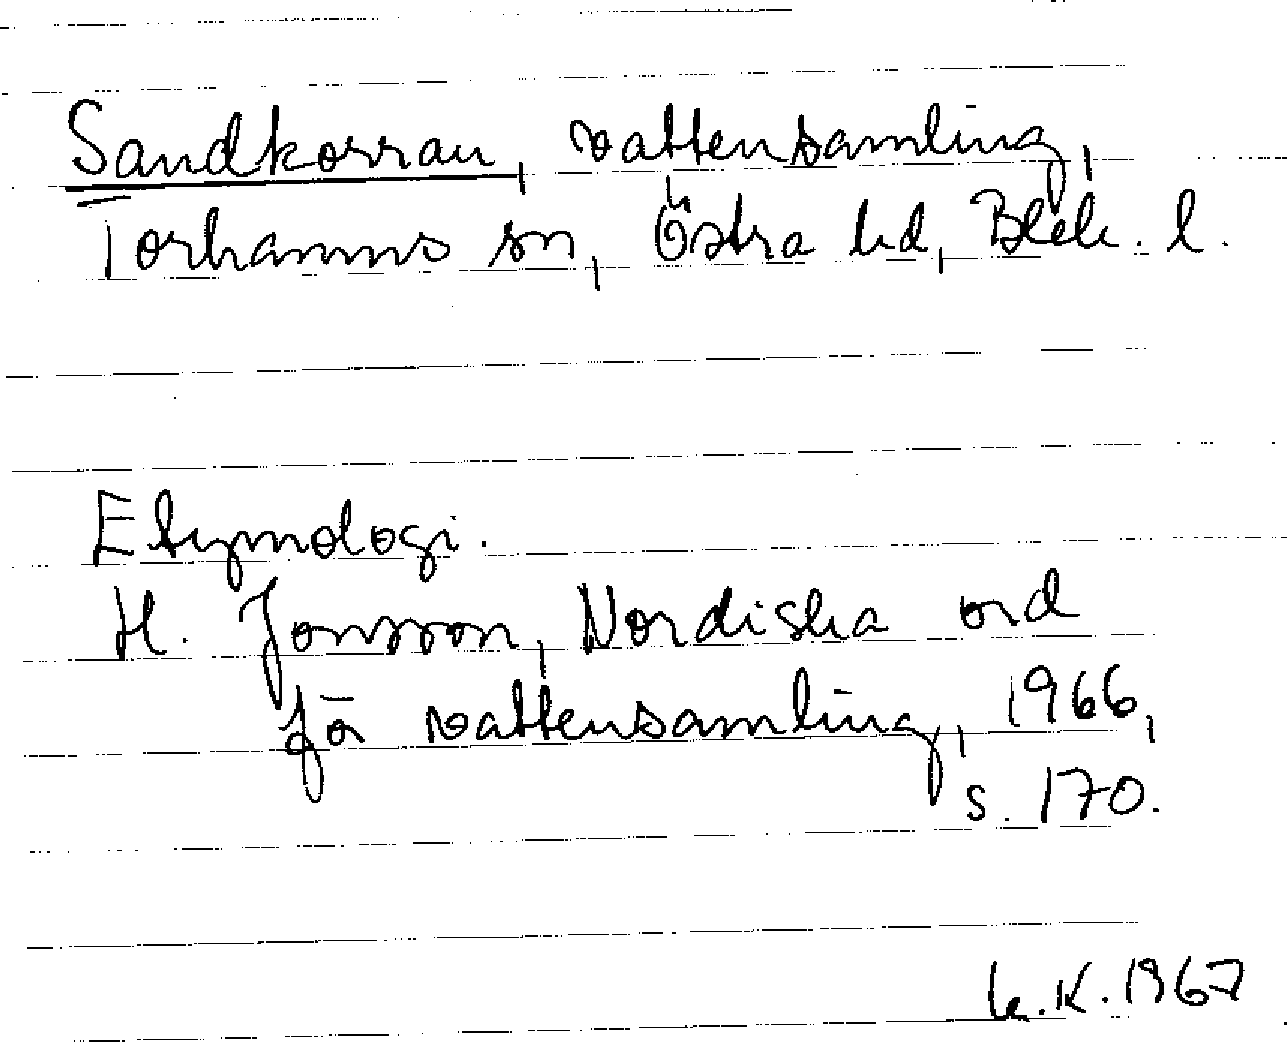 Sandkorran, vattensamling,
Torhamns sn, Östra hd, Blek. l.
Etymologi.
H. Jonsson, Nordiska ord
för vattensamling, 1966,
s. 170.
K.K. 1967